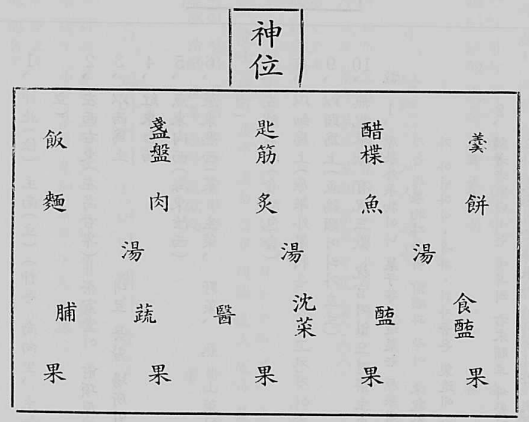 神位
飯 盞盤 匙筋 醋楪 羹
麵 肉 炙 魚 餅
湯 湯 湯
脯 蔬 醫 沈菜 醢 食醢
果 果 果 果 果